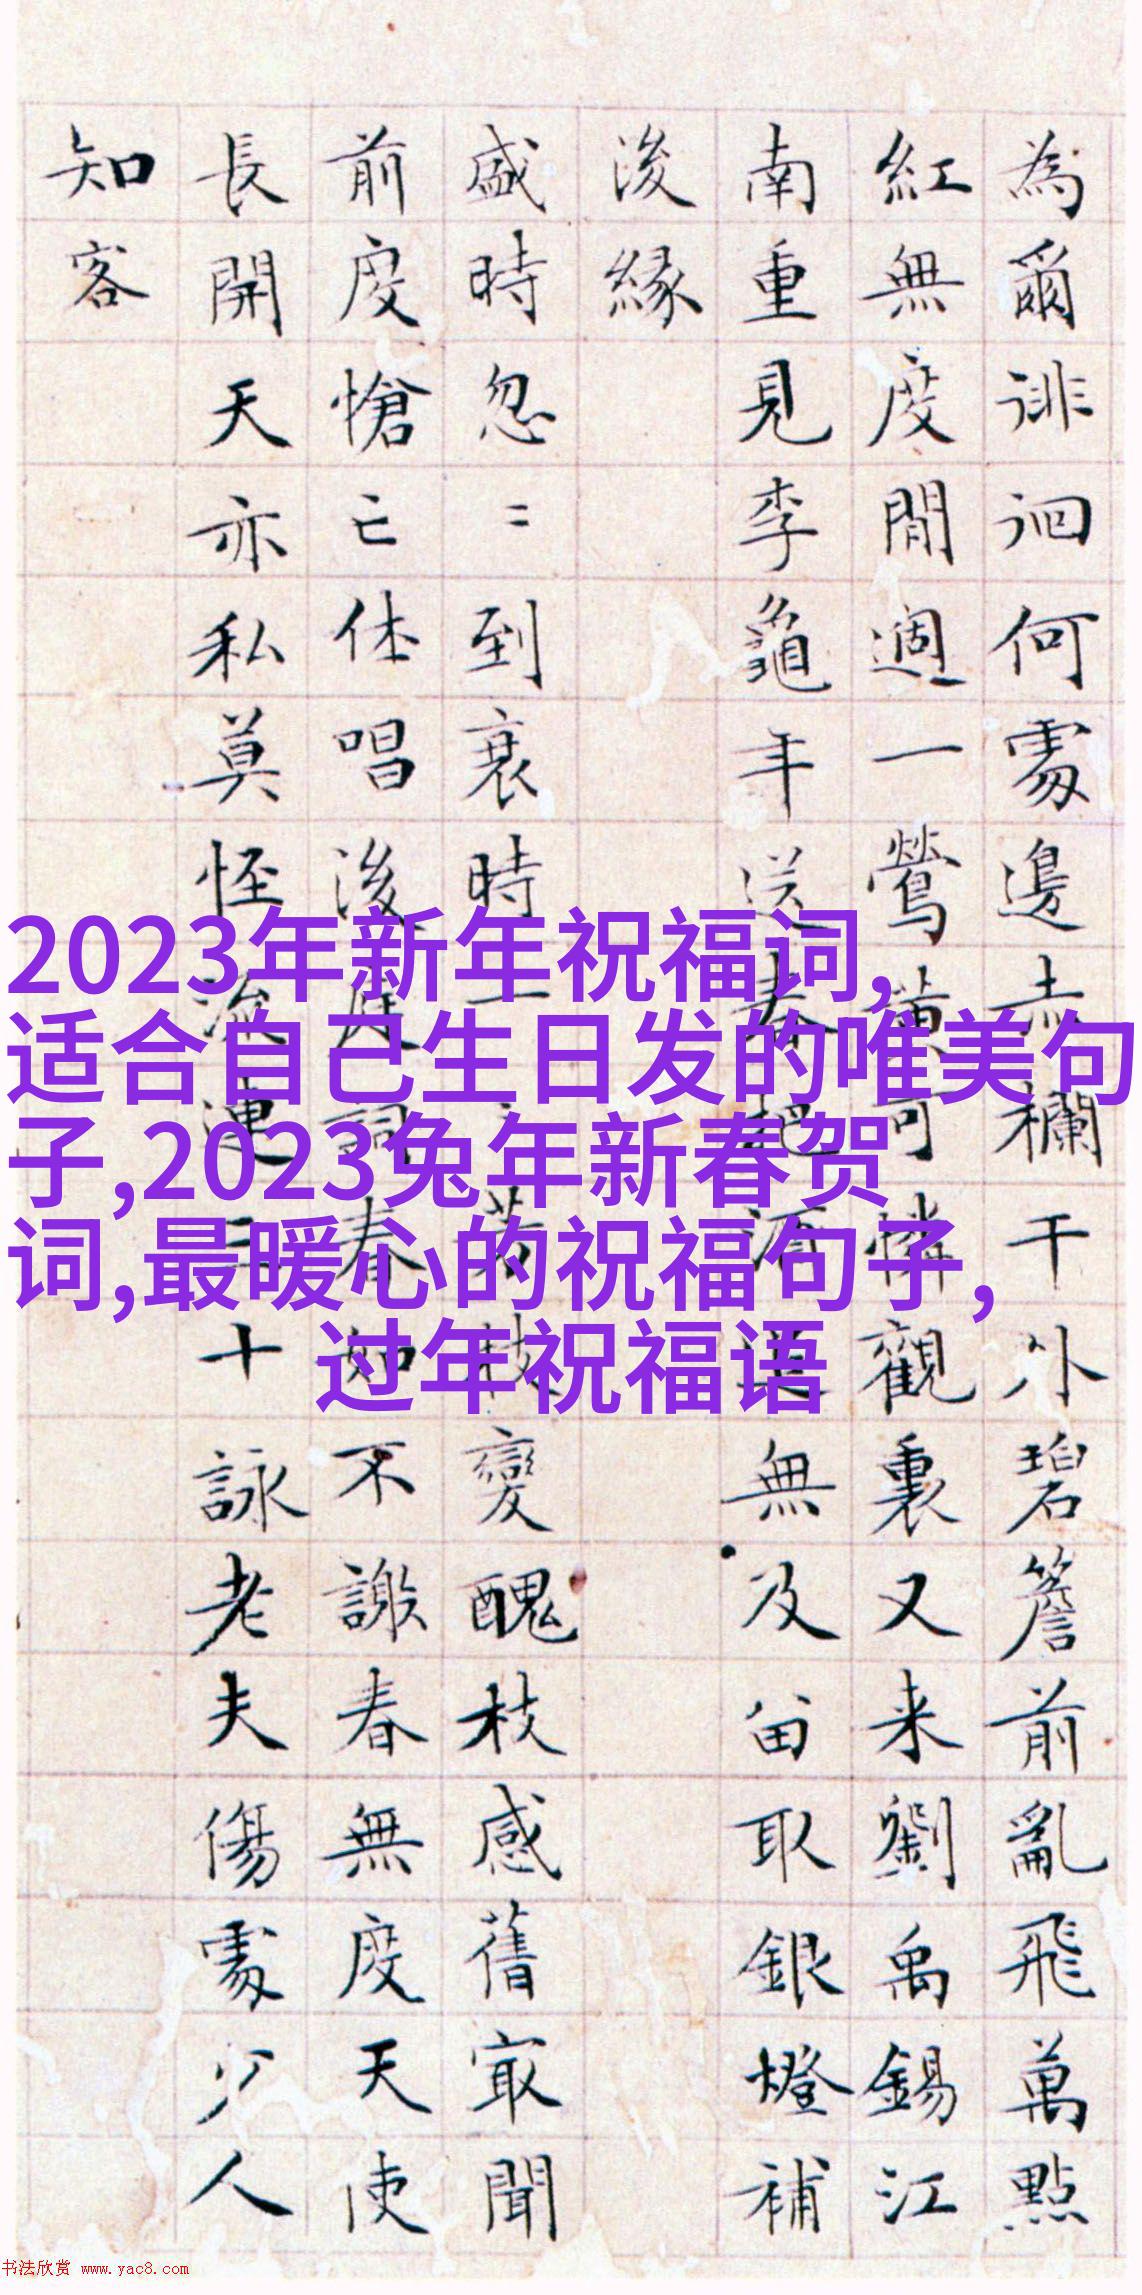 為爾徘徊何處邊赤欄干外碧簷前亂飛萬點
紅無度閒週一鶯黃可憐觀裏又来劉禹錫江
南重見李龜年送春把酒無及留取銀燈補
後緣
盛時忽〻到衰時一一芳枝變醜枝感舊㝡聞
前度愴亡休唱後庭詞春如不謝春無度天使
長開天亦私莫怪流連三十詠老夫傷處少人
知客
2023年新年祝福词,
适合自己生日发的唯美句
子,2023兔年新春贺
词,最暖心的祝福句子,
过年祝福语
书法欣赏 www.yac8.com